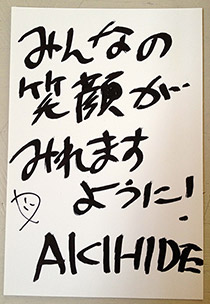 みんなの
笑顔が
みれます
ように!
AKIHIDE